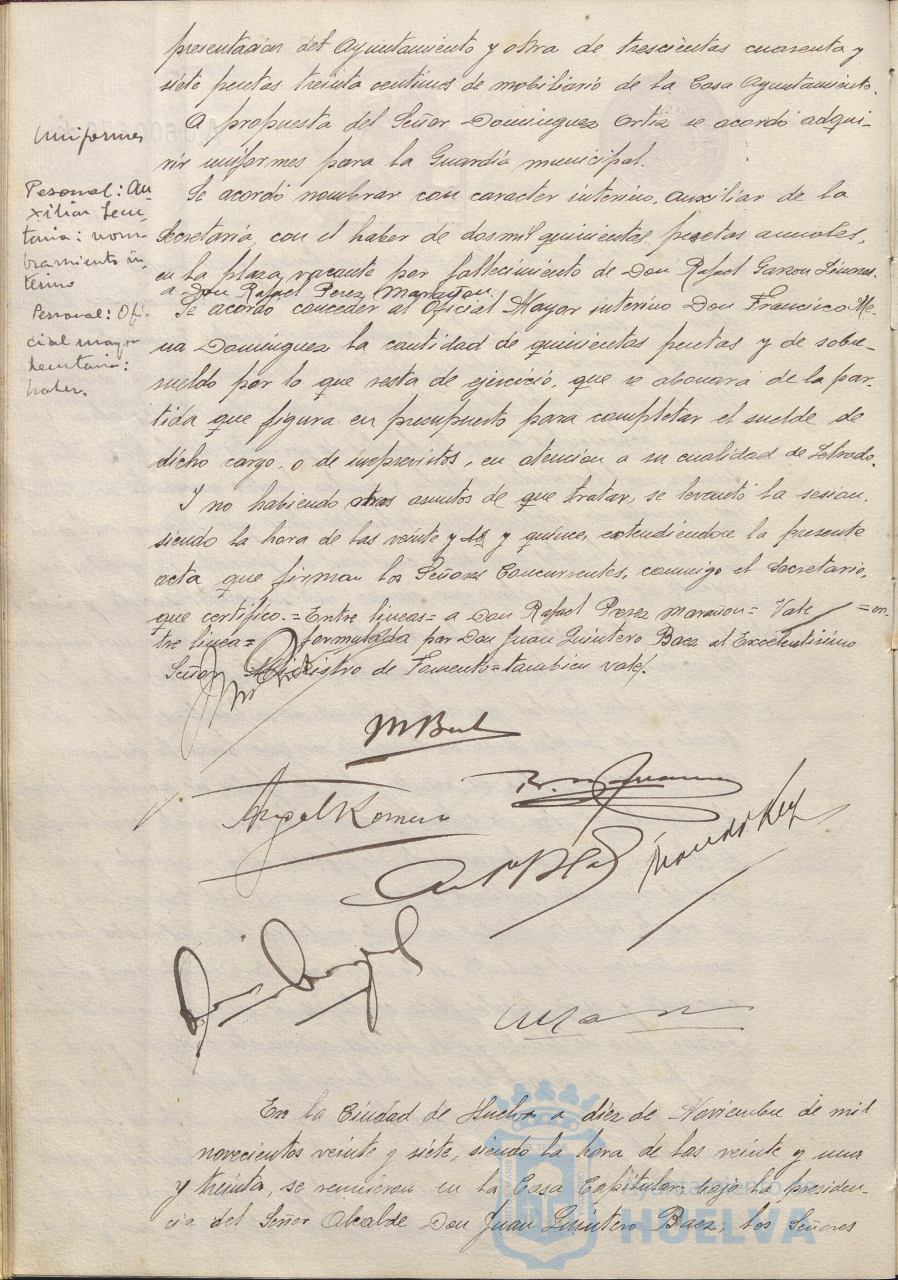 presentacion del Ayuntamiento y otra de trescientas cuarenta y
siete pesetas treinta centimos de mobiliario de la Casa Ayuntamiento.
Uniformes
A propuesta del Señor Dominguez Ortiz se acordó adqui-
rir uniformes para la Guardia municipal.
Pesonal: Au-
xiliar Secre-
taria: nom-
bramiento in-
terino
Se acordó nombrar con caracter interino, auxiliar de la
Secretaría, con el haber de dos mil quinientas pesetas anuales,
en la plaza vacante por fallecimiento de Don Rafael Garzon
a Don Rafael Perez Marañon.
Personal: Ofi-
cial mayor
Secretaria:
haber.
Se acordo conceder al Oficial Mayor interino Don Francisco Me-
na Dominguez la cantidad de quinientas pesetas y de sobre-
sueldo por lo que resta de ejercicio, que se abonará de la par-
tida que figura en presupuesto para completar el sueldo de
dicho cargo, o de imprevistos, en atencion a su cualidad de Letrado.
I no habiendo otros asuntos de que tratar, se levantó la sesion,
siendo la hora de las veinte y y quince, extendiendose la presente
acta que firman los Señores Concurrentes, conmigo el Secretario,
que certifico.=Entre lineas= a Don Rafael Perez Marañon= Vale =en-
tre linea= formulada por Don Juan Quintero Baez al Excelentisimo
Señor Ministro de Fomento=tambien vale.
Angel Romero
En la Ciudad de Huelva a diez de Noviembre de mil
novecientos veinte y siete, siendo la hora de las veinte y una
y treinta, se reunieron en la Casa Capitular, bajo la presiden-
cia del Señor Alcalde Don Juan Quintero Baez, los Señores
Ayuntamiento de
HUELVA